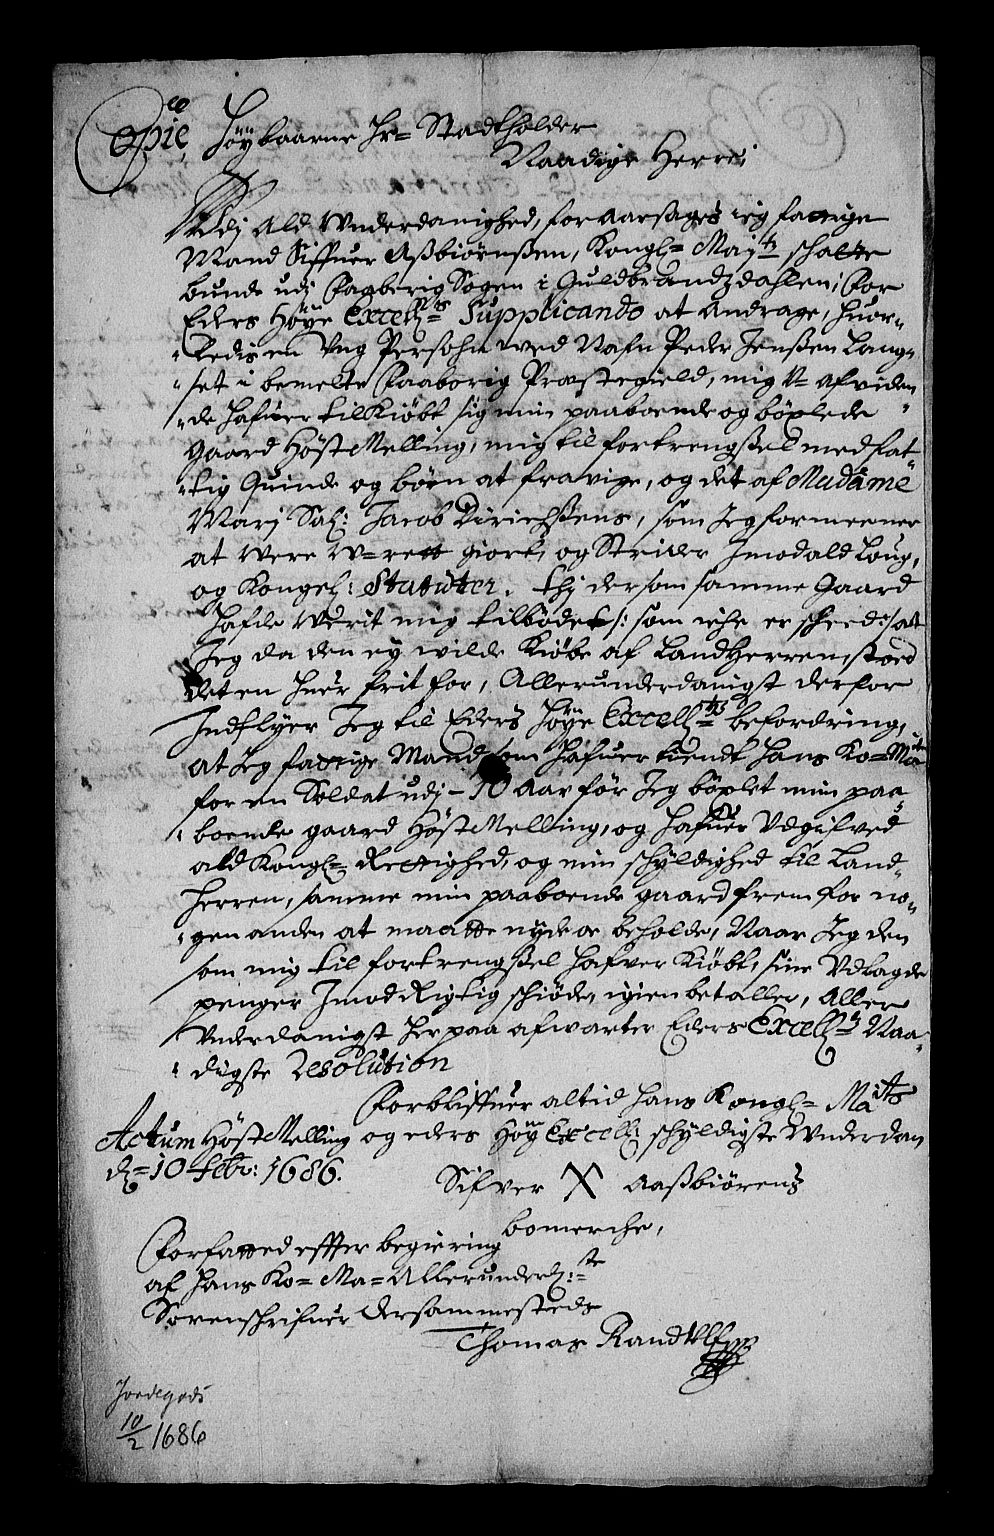 Copie
Höybaarne Hr= Stadtholder
Naadige Herre:
Udj Ald Underdanighed, foraarsages ieg fattige
Mand Siffuer Aßbiörnßen, Kongl= Maytz schatte
bunde udi Faaberig Sogen i Guldbrandzdahlen, For
Eders Höye Excellts Supplicando at Andrage, huor-
ledis en Ung Persohn wed Nafn Peder Jenßen Lang-
set i bemelte Faaborig Præstegield, mig V= afviden
de hafuer tilkiöbt sig min paaboende og böxlede
Gaard Höst Melling, mig til fortrengßel med fat
tig Quinde og börn at fravige, og det af Madame
Marj Sal: Jacob Dirichßens, som Jeg formeener
at were W=rett giort, og Strider Jmod ald Loug,
og Kongel: Statuter. thj dersom samme Gaard
hafde Werit mig tilböden /: som iche er scheed :/ att
Jeg da den ey wilde Kiöbe af Landherren, stoed
det en huer frit for, Allerunderdanigst derfor
Indflyer Jeg til Eders Höye Excellts befordring,
at Jeg fattige Mand som hafuer tient Hans Ko= Mats
for en Soldat udj - 10 Aar för Jeg böxlet min paa
boende gaard Höst Melling, og hafuer Udgifved
ald Kongl= Rettighed, og min schyldighed til Land-
herren, samme min paaboende gaard frem for no-
gen anden at maatte nyde oc beholde, Naar Jeg den
som mig til fortrengßel hafver Kiöbt, sine Udlagde
penger Jmod Rigtig schiöde, igien betaller, Aller
Underdanigst her paa afwarter Eders Excelltz Naa-
digste Resolution
Forbliffuer altid Hans Kongl= Maitts
og eders Höy Excell: schyldigste Underdan
Actum Höst Melling
d= 10 Febr: 1686.
Sifver X Aaßbiörenß
bomerche,
Forfatted effter begiering
af Hans Ko= Ma= Allerunderd:ste
Sorenschrifuer dersammesteds
Thomas Randulf
Jordegods
10/2 1686